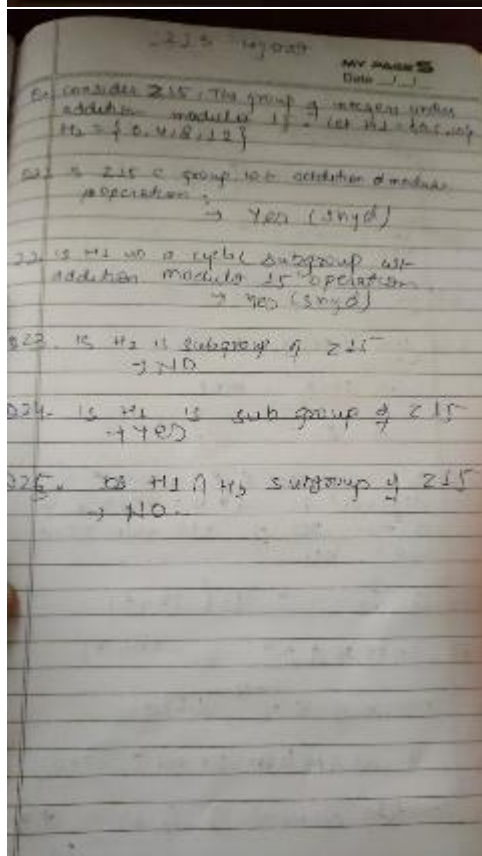 MY PAGES
Date
consider Z15. The group of integers under
addition modulo 15. Let H1 = {0,5,10}
H2 = {0,4,8,12}
is Z15 a group w.r.t addition modulo
operation.
→ Yes
is H1 a cyclic subgroup wr
addition modulo 15 operation.
→ Yes
Q23. is H2 is subgroup of Z15
→ NO
Q24. is H1 is sub group of Z15
→ Yes
Q25. H1 ∩ H2 subgroup of Z15
→ NO.